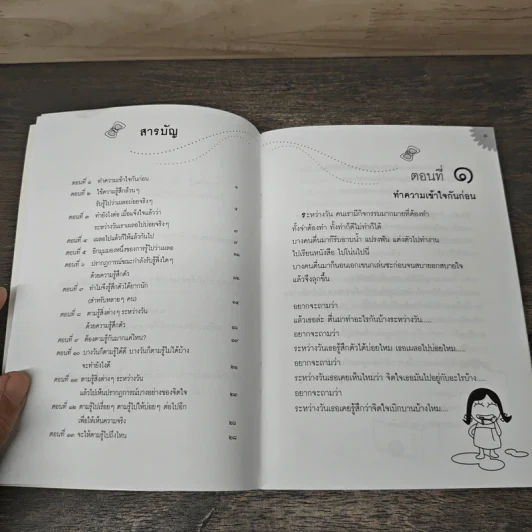 สารบัญ
ตอนที่ ๑ ทำความเข้าใจกันก่อน
ตอนที่ ๒ ใช้ความรู้สึกล้วนๆ ๑
รับรู้ไปว่าเผลอบ่อยจริงๆ
ตอนที่ ๓ ทำยังไงต่อ เมื่อแจ้งใจแล้วว่า
ระหว่างวันเราเผลอไปบ่อยจริงๆ ๗
ตอนที่ ๔ เผลอไปแล้วก็ให้แล้วกันไป ๗
ตอนที่ ๕ อีกมุมมองหนึ่งของการรู้ไปว่าเผลอ ๘
ตอนที่ ๖ ปรากฏการณ์ขณะกำลังรับรู้สิ่งใดๆ
ด้วยความรู้สึกตัว ๑๒
ตอนที่ ๗ ทำไมจึงรู้สึกตัวได้ยากนัก
(สำหรับหลายๆ คน) ๑๔
ตอนที่ ๘ ตามรู้สิ่งต่างๆ ระหว่างวัน
ด้วยความรู้สึกตัว
ตอนที่ ๙ ต้องตามรู้กันมากแค่ไหน?
ตอนที่ ๑๐ บางวันก็ตามรู้ได้ดี บางวันก็ตามรู้ไม่ได้บ้าง
จะทำยังไงดี
ตอนที่ ๑๑ ตามรู้สิ่งต่างๆ ระหว่างวัน
แล้วไปเห็นปรากฏการณ์บางอย่างของจิตใจ
ตอนที่ ๑๒ ตามรู้ไปเรื่อยๆ ตามรู้ไปให้บ่อยๆ ต่อไปอีก
เพื่อให้เห็นความจริง
ตอนที่ ๑๓ จะให้ตามรู้ไปถึงไหน ๒๘
ตอนที่ ๑
ทำความเข้าใจกันก่อน
ระหว่างวัน คนเรามีกิจกรรมมากมายที่ต้องทำ
ทั้งจำต้องทำ ทั้งทำก็ดีไม่ทำก็ได้
บางคนตื่นมาก็รีบอาบน้ำ แปรงฟัน แต่งตัวไปทำงาน
ไปเรียนหนังสือ ไปโน่นไปนี่
บางคนตื่นมาก็นอนเอกเขนกเล่นซะก่อนจนสบายอกสบายใจ
แล้วจึงลุกขึ้น
อยากจะถามว่า
แล้วเธอล่ะ ตื่นมาทำอะไรกันบ้างระหว่างวัน....
อยากจะถามว่า
ระหว่างวันเธอรู้สึกตัวได้บ่อยไหม เธอเผลอไปบ่อยไหม....
อยากจะถามว่า
ระหว่างวันเธอเคยเห็นไหมว่า จิตใจเธอมันไปอยู่กับอะไรบ้าง....
อยากจะถามว่า
ระหว่างวันเธอเคยรู้สึกว่าจิตใจเบิกบานบ้างไหม....